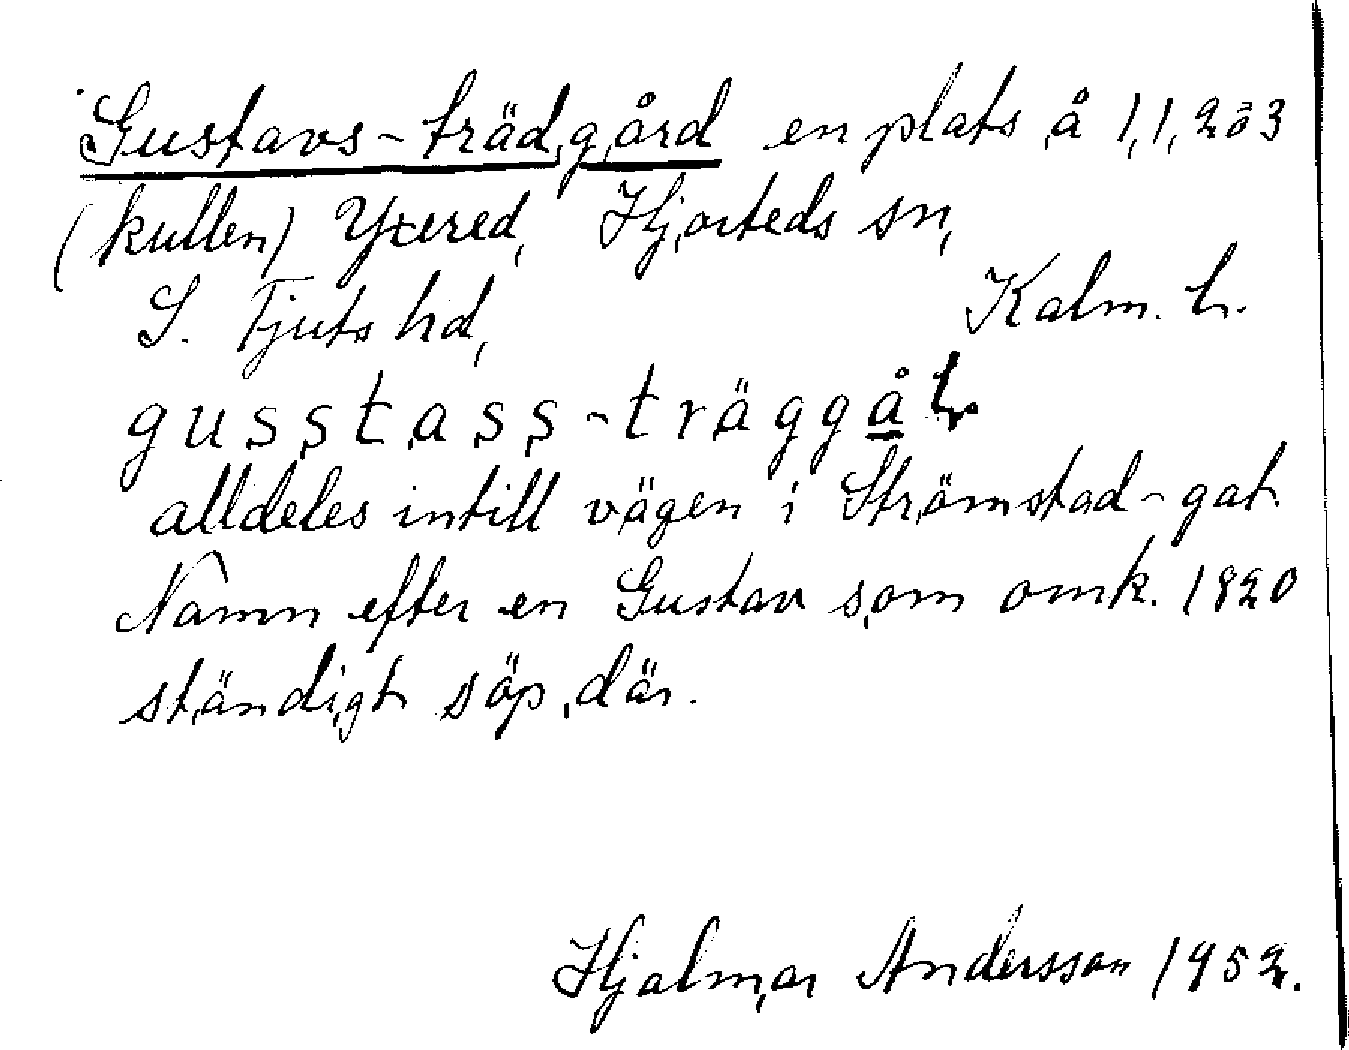 Gustavs-trädgård en plats å 1,1,2o3
(kullen) Yxered, Hjorteds sn,
S. Tjuts hd, Kalm. l.
gusstass-träggål
alldeles intill vägen i Strömstad-gat.
Namn efter en Gustav som omk. 1820
ständigt söp där.
Hjalmar Andersson 1952.